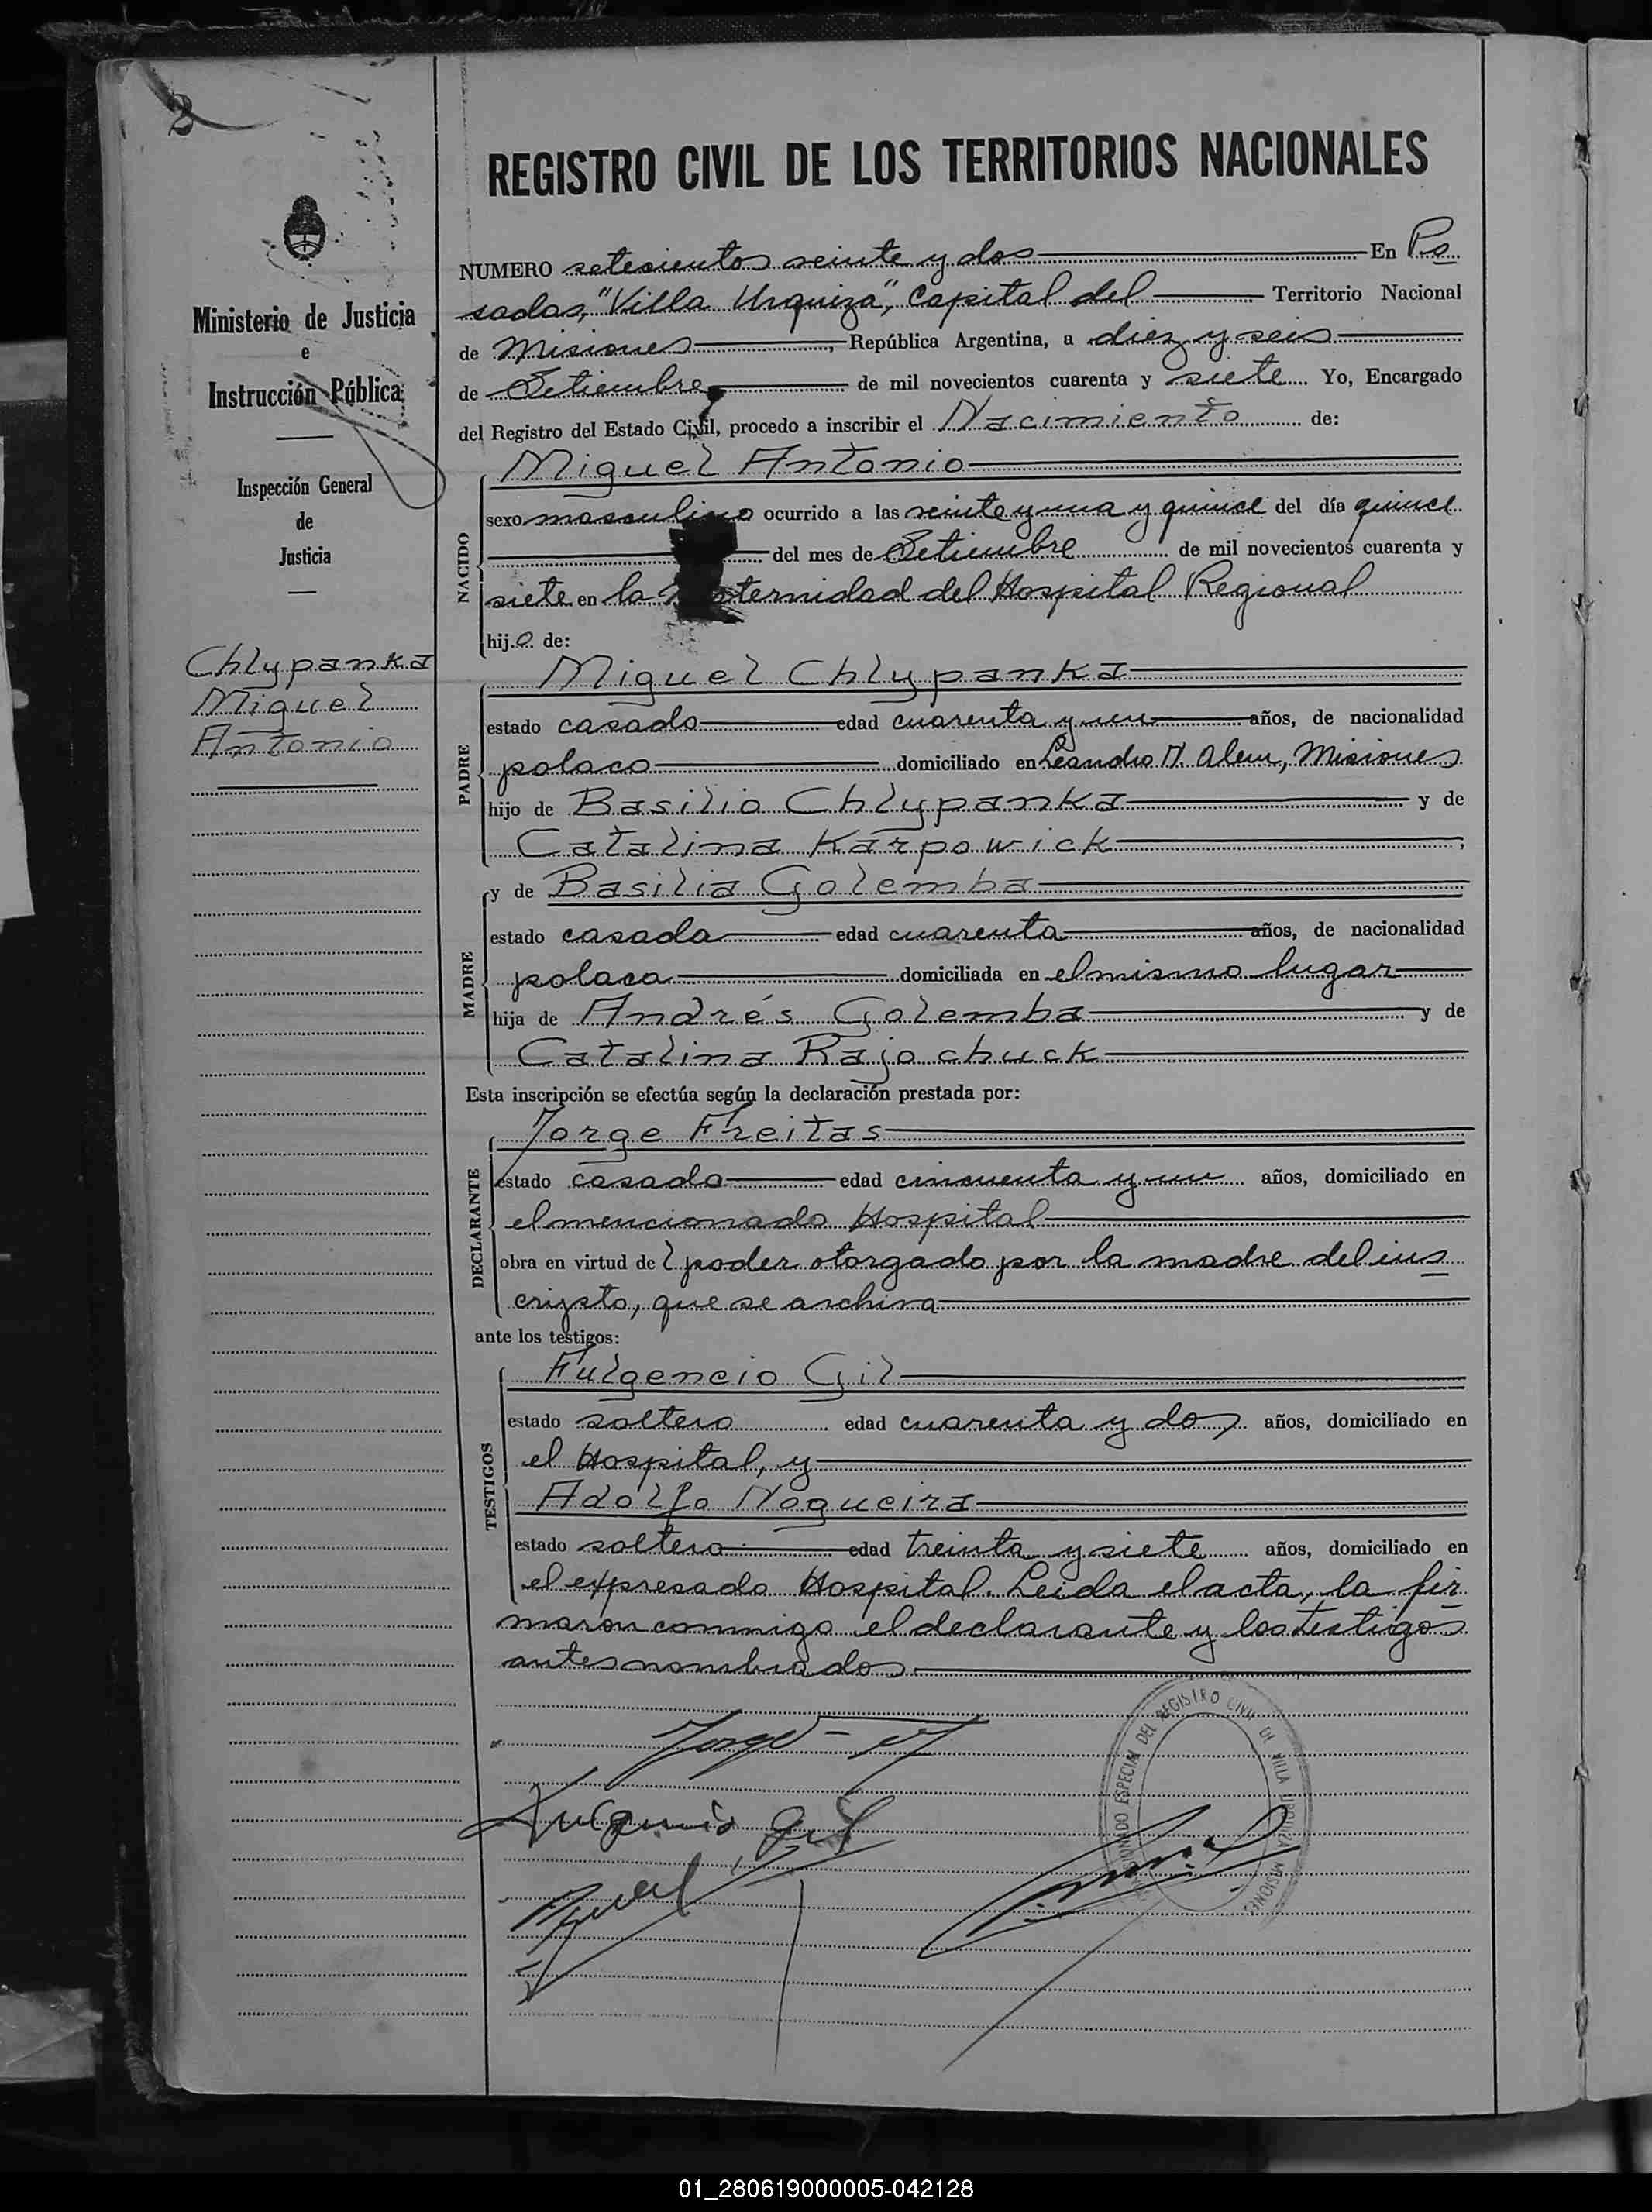 2
REGISTRO CIVIL DE LOS TERRITORIOS NACIONALES
Ministerio de Justicia
e
Instrucción Pública
Inspección General
de
Justicia
Chlypanka
Miguel
Antonio
NUMERO setecientos veinte y dos En Po
sadas, "Villa Urquiza", Capital del Territorio Nacional
de Misiones, República Argentina, a diez y seis
de Setiembre de mil novecientos cuarenta y siete Yo, Encargado
del Registro del Estado Civil, procedo a inscribir el Nacimiento de:
NACIDO
Miguel Antonio
sexo masculino ocurrido a las veinte y una y quince del día quince
del mes de Setiembre de mil novecientos cuarenta y
siete en la ternidad del Hospital Regional
hijo de:
PADRE
Miguel Chlypanka
estado casado edad cuarenta y un años, de nacionalidad
polaco domiciliado en Leandro N. Alem, Misiones
hijo de Basilio Chlypanka y de
Catalina Karpowick,
MADRE
y de Basilia Golemba
estado casada edad cuarenta años, de nacionalidad
polaca domiciliada en el mismo lugar
hija de Andrés Golemba y de
Catalina Rajochuck
Esta inscripción se efectúa según la declaración prestada por:
DECLARANTE
Jorge Freitas
estado casado edad cincuenta y un años, domiciliado en
el mencionado Hospital
obra en virtud del poder otorgado por la madre del ins
cripto, que se archiva
ante los testigos:
TESTIGOS
Fulgencio Gil
estado soltero edad cuarenta y dos años, domiciliado en
el Hospital, y
Adolfo Nogueira
estado soltero edad treinta y siete años, domiciliado en
el expresado Hospital. Leida el acta, la fir
maron conmigo el declarante y los testigos
antes nombrados.
ESPECIAL DEL REGISTRO CIVIL DE VILLA URQUIZA MISIONES
Fulgencio Gil
01_280619000005-042128